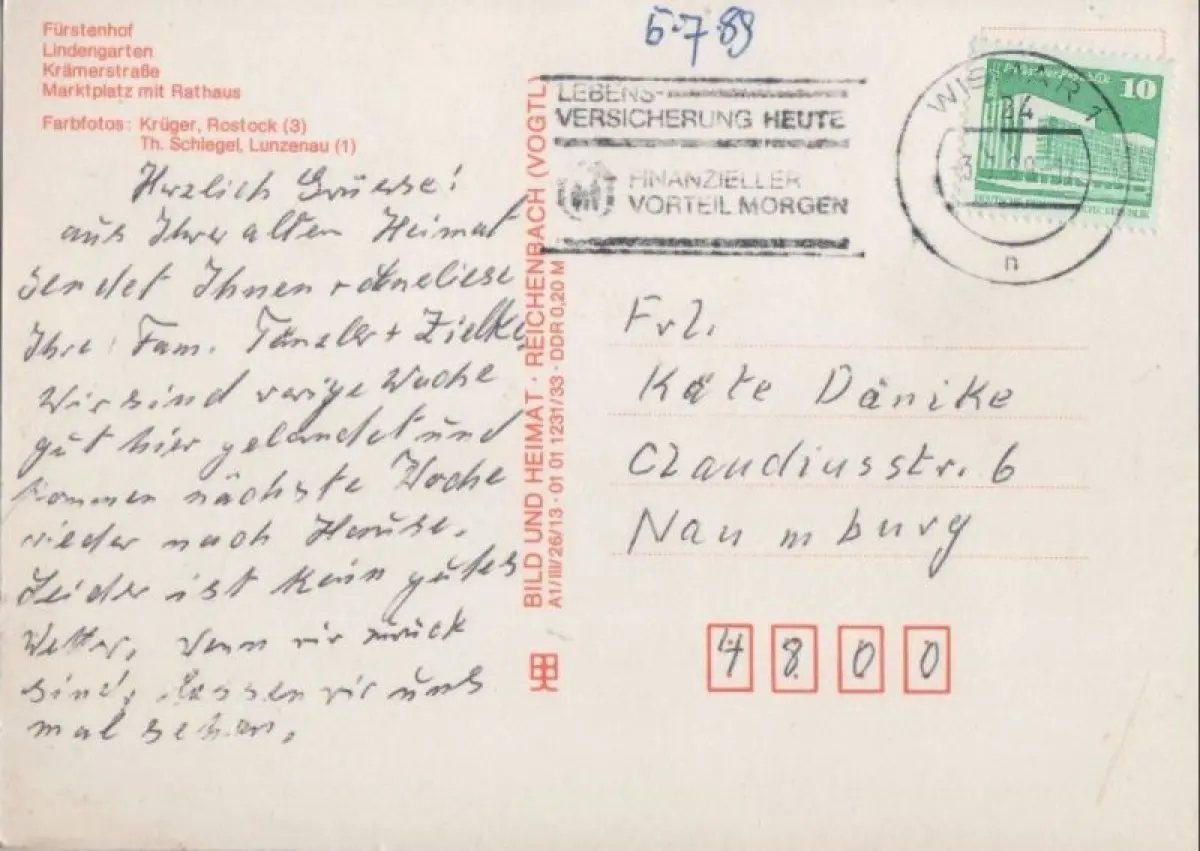 Fürstenhof
Lindengarten
Krämerstraße
Marktplatz mit Rathaus
Farbfotos: Krüger, Rostock (3)
Th. Schlegel, Lunzenau (1)
Herzlich Grüesse!
aus Ihrer alten Heimat
sendet Ihnen
Ihre Fam. + Zielke
Wir sind vorige Woche
gut hier gelandet und
kommen nächste Woche
wieder nach Hause.
Leider ist kein gutes
Wetter. Wenn wir zurück
sind, lassen wir uns
mal sehen.
BILD UND HEIMAT · REICHENBACH (VOGTL)
A1/III/26/13 · 01 01 1231/33 · DDR 0,20 M
5.7.89
LEBENS-
VERSICHERUNG HEUTE
FINANZIELLER
VORTEIL MORGEN
WISMAR 1
24
n
10
Frl.
Käte Dänike
Claudiusstr. 6
Naumburg
4800